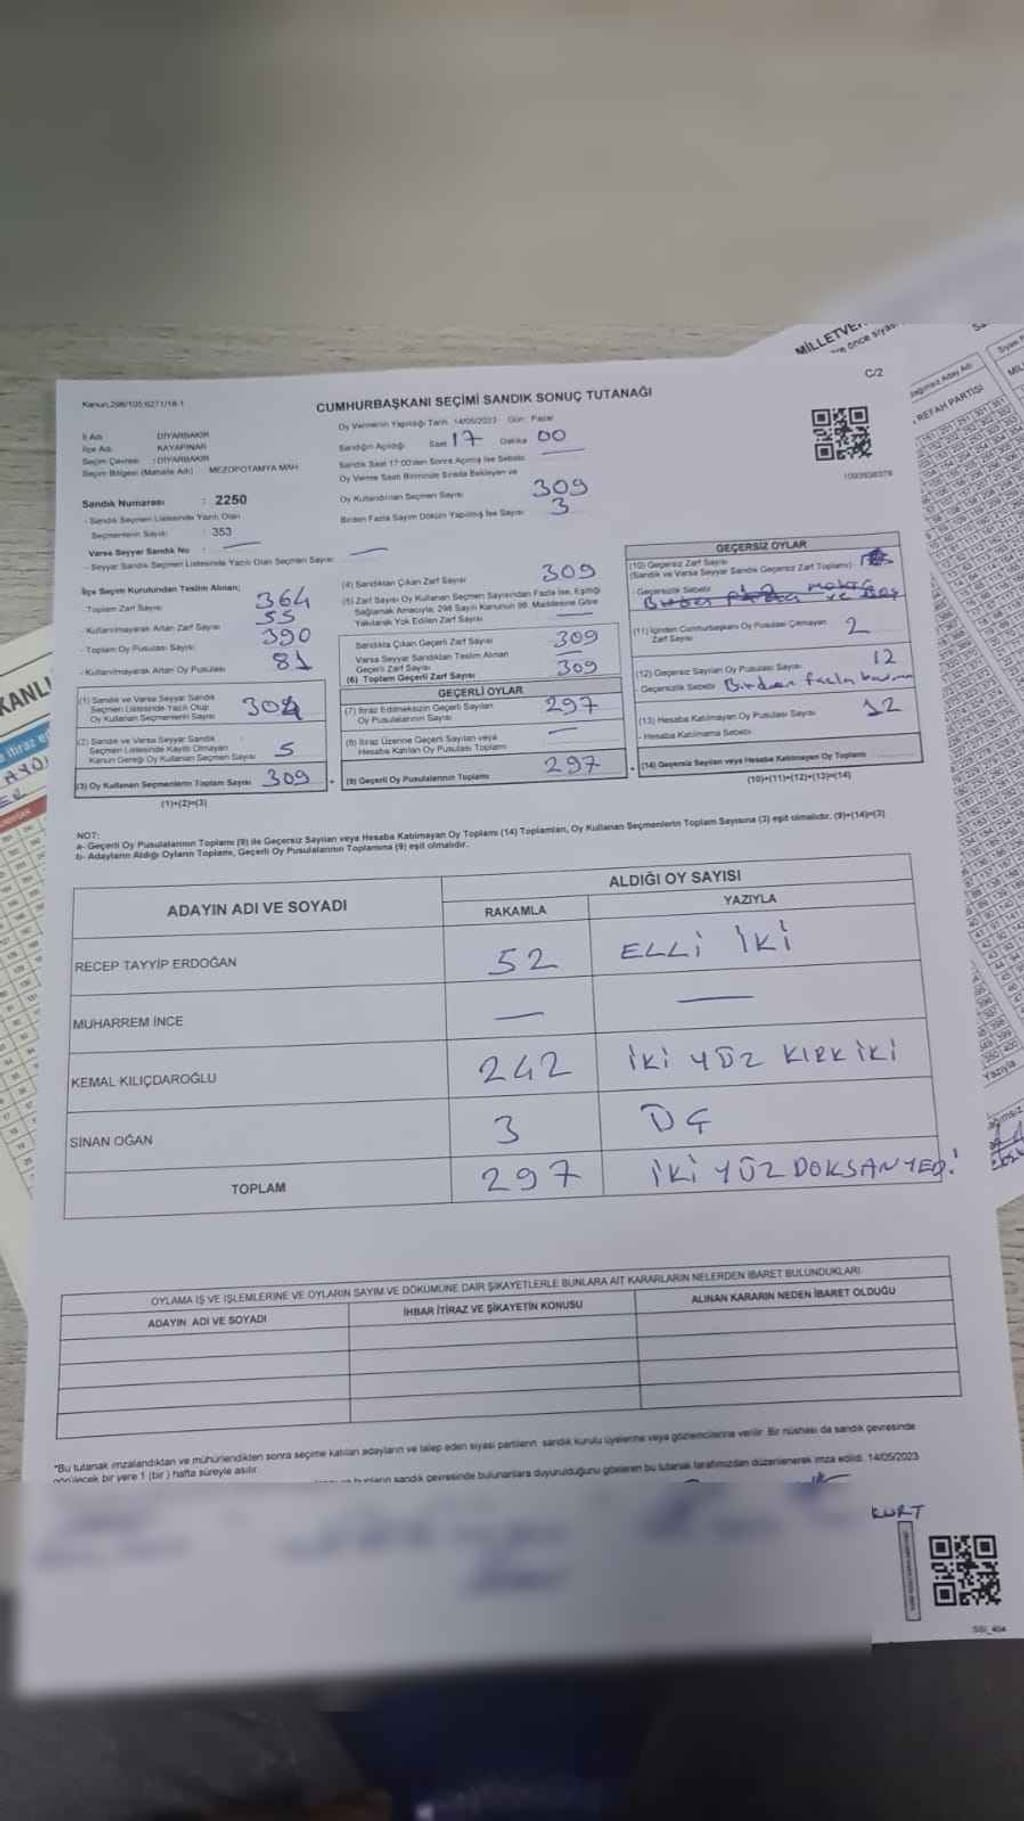 MİLLETVE
C/2
Kanun:298/105;6271/18-1
CUMHURBAŞKANI SEÇİMİ SANDIK SONUÇ TUTANAĞI
İl Adı : DİYARBAKIR
İlçe Adı : KAYAPINAR
Seçim Çevresi : DİYARBAKIR
Seçim Bölgesi (Mahalle Adı) : MEZOPOTAMYA MAH
Sandık Numarası : 2250
- Sandık Seçmen Listesinde Yazılı Olan
Seçmenlerin Sayısı : 353
Varsa Seyyar Sandık No :
- Seyyar Sandık Seçmen Listesinde Yazılı Olan Seçmen Sayısı
Oy Vermenin Yapıldığı Tarih 14/05/2023 Gün: Pazar
Sandığın Açıldığı Saat 17 Dakika 00
Sandık Saat 17:00'den Sonra Açılmış İse Sebebi
Oy Verme Saati Bitiminde Sırada Bekleyen ve
Oy Kullandırılan Seçmen Sayısı 309
Birden Fazla Sayım Döküm Yapılmış İse Sayısı 3
İlçe Seçim Kurulundan Teslim Alınan;
-Toplam Zarf Sayısı 364
-Kullanılmayarak Artan Zarf Sayısı 55
-Toplam Oy Pusulası Sayısı 390
-Kullanılmayarak Artan Oy Pusulası 81
(1) Sandık ve Varsa Seyyar Sandık
Seçmen Listesinde Yazılı Olup
Oy Kullanan Seçmenlerin Sayısı 304
(2) Sandık ve Varsa Seyyar Sandık
Seçmen Listesinde Kayıtlı Olmayan
Kanun Gereği Oy Kullanan Seçmen Sayısı 5
(3) Oy Kullanan Seçmenlerin Toplam Sayısı 309
(1)+(2)=(3)
(4) Sandıktan Çıkan Zarf Sayısı 309
(5) Zarf Sayısı Oy Kullanan Seçmen Sayısından Fazla İse, Eşitliği
Sağlamak Amacıyla, 298 Sayılı Kanunun 98. Maddesine Göre
Yakılarak Yok Edilen Zarf Sayısı
Sandıkta Çıkan Geçerli Zarf Sayısı 309
Varsa Seyyar Sandıktan Teslim Alınan
Geçerli Zarf Sayısı
(6) Toplam Geçerli Zarf Sayısı 309
GEÇERLİ OYLAR
(7) İtiraz Edilmeksizin Geçerli Sayılan
Oy Pusulalarının Sayısı 297
(8) İtiraz Üzerine Geçerli Sayılan veya
Hesaba Katılan Oy Pusulası Toplamı
(9) Geçerli Oy Pusulalarının Toplamı 297
GEÇERSİZ OYLAR
(10) Geçersiz Zarf Sayısı
(Sandık ve Varsa Seyyar Sandık Geçersiz Zarf Toplamı)
Geçersizlik Sebebi
(11) İçinden Cumhurbaşkanı Oy Pusulası Çıkmayan
Zarf Sayısı 2
(12) Geçersiz Sayılan Oy Pusulası Sayısı 12
Geçersizlik Sebebi Birden fazla
(13) Hesaba Katılmayan Oy Pusulası Sayısı 12
- Hesaba Katılmama Sebebi
(14) Geçersiz Sayılan veya Hesaba Katılmayan Oy Toplamı
(10)+(11)+(12)+(13)=(14)
NOT:
a- Geçerli Oy Pusulalarının Toplamı (9) ile Geçersiz Sayılan veya Hesaba Katılmayan Oy Toplamı (14) Toplamları, Oy Kullanan Seçmenlerin Toplam Sayısına (3) eşit olmalıdır. (9)+(14)=(3)
b- Adayların Aldığı Oyların Toplamı, Geçerli Oy Pusulalarının Toplamına (9) eşit olmalıdır.
ADAYIN ADI VE SOYADI
ALDIĞI OY SAYISI
RAKAMLA YAZIYLA
RECEP TAYYİP ERDOĞAN 52 ELLİ İKİ
MUHARREM İNCE
KEMAL KILIÇDAROĞLU 242 İKİ YÜZ KIRK İKİ
SİNAN OĞAN 3 ÜÇ
TOPLAM 297 İKİ YÜZ DOKSAN YEDİ
OYLAMA İŞ VE İŞLEMLERİNE VE OYLARIN SAYIM VE DÖKÜMÜNE DAİR ŞİKAYETLERLE BUNLARA AİT KARARLARIN NELERDEN İBARET BULUNDUKLARI
ADAYIN ADI VE SOYADI İHBAR İTİRAZ VE ŞİKAYETİN KONUSU ALINAN KARARIN NEDEN İBARET OLDUĞU
*Bu tutanak imzalandıktan ve mühürlendikten sonra seçime katılan adayların ve talep eden siyasi partilerin sandık kurulu üyelerine veya gözlemcilerine verilir. Bir nüshası da sandık çevresinde
görülecek bir yere 1 (bir) hafta süreyle asılır.
sandık çevresinde bulunanlara duyurulduğunu gösteren bu tutanak tarafımızdan düzenlenerek imza edildi. 14/05/2023
KURT
REFAH PARTİSİ
Yazıyla